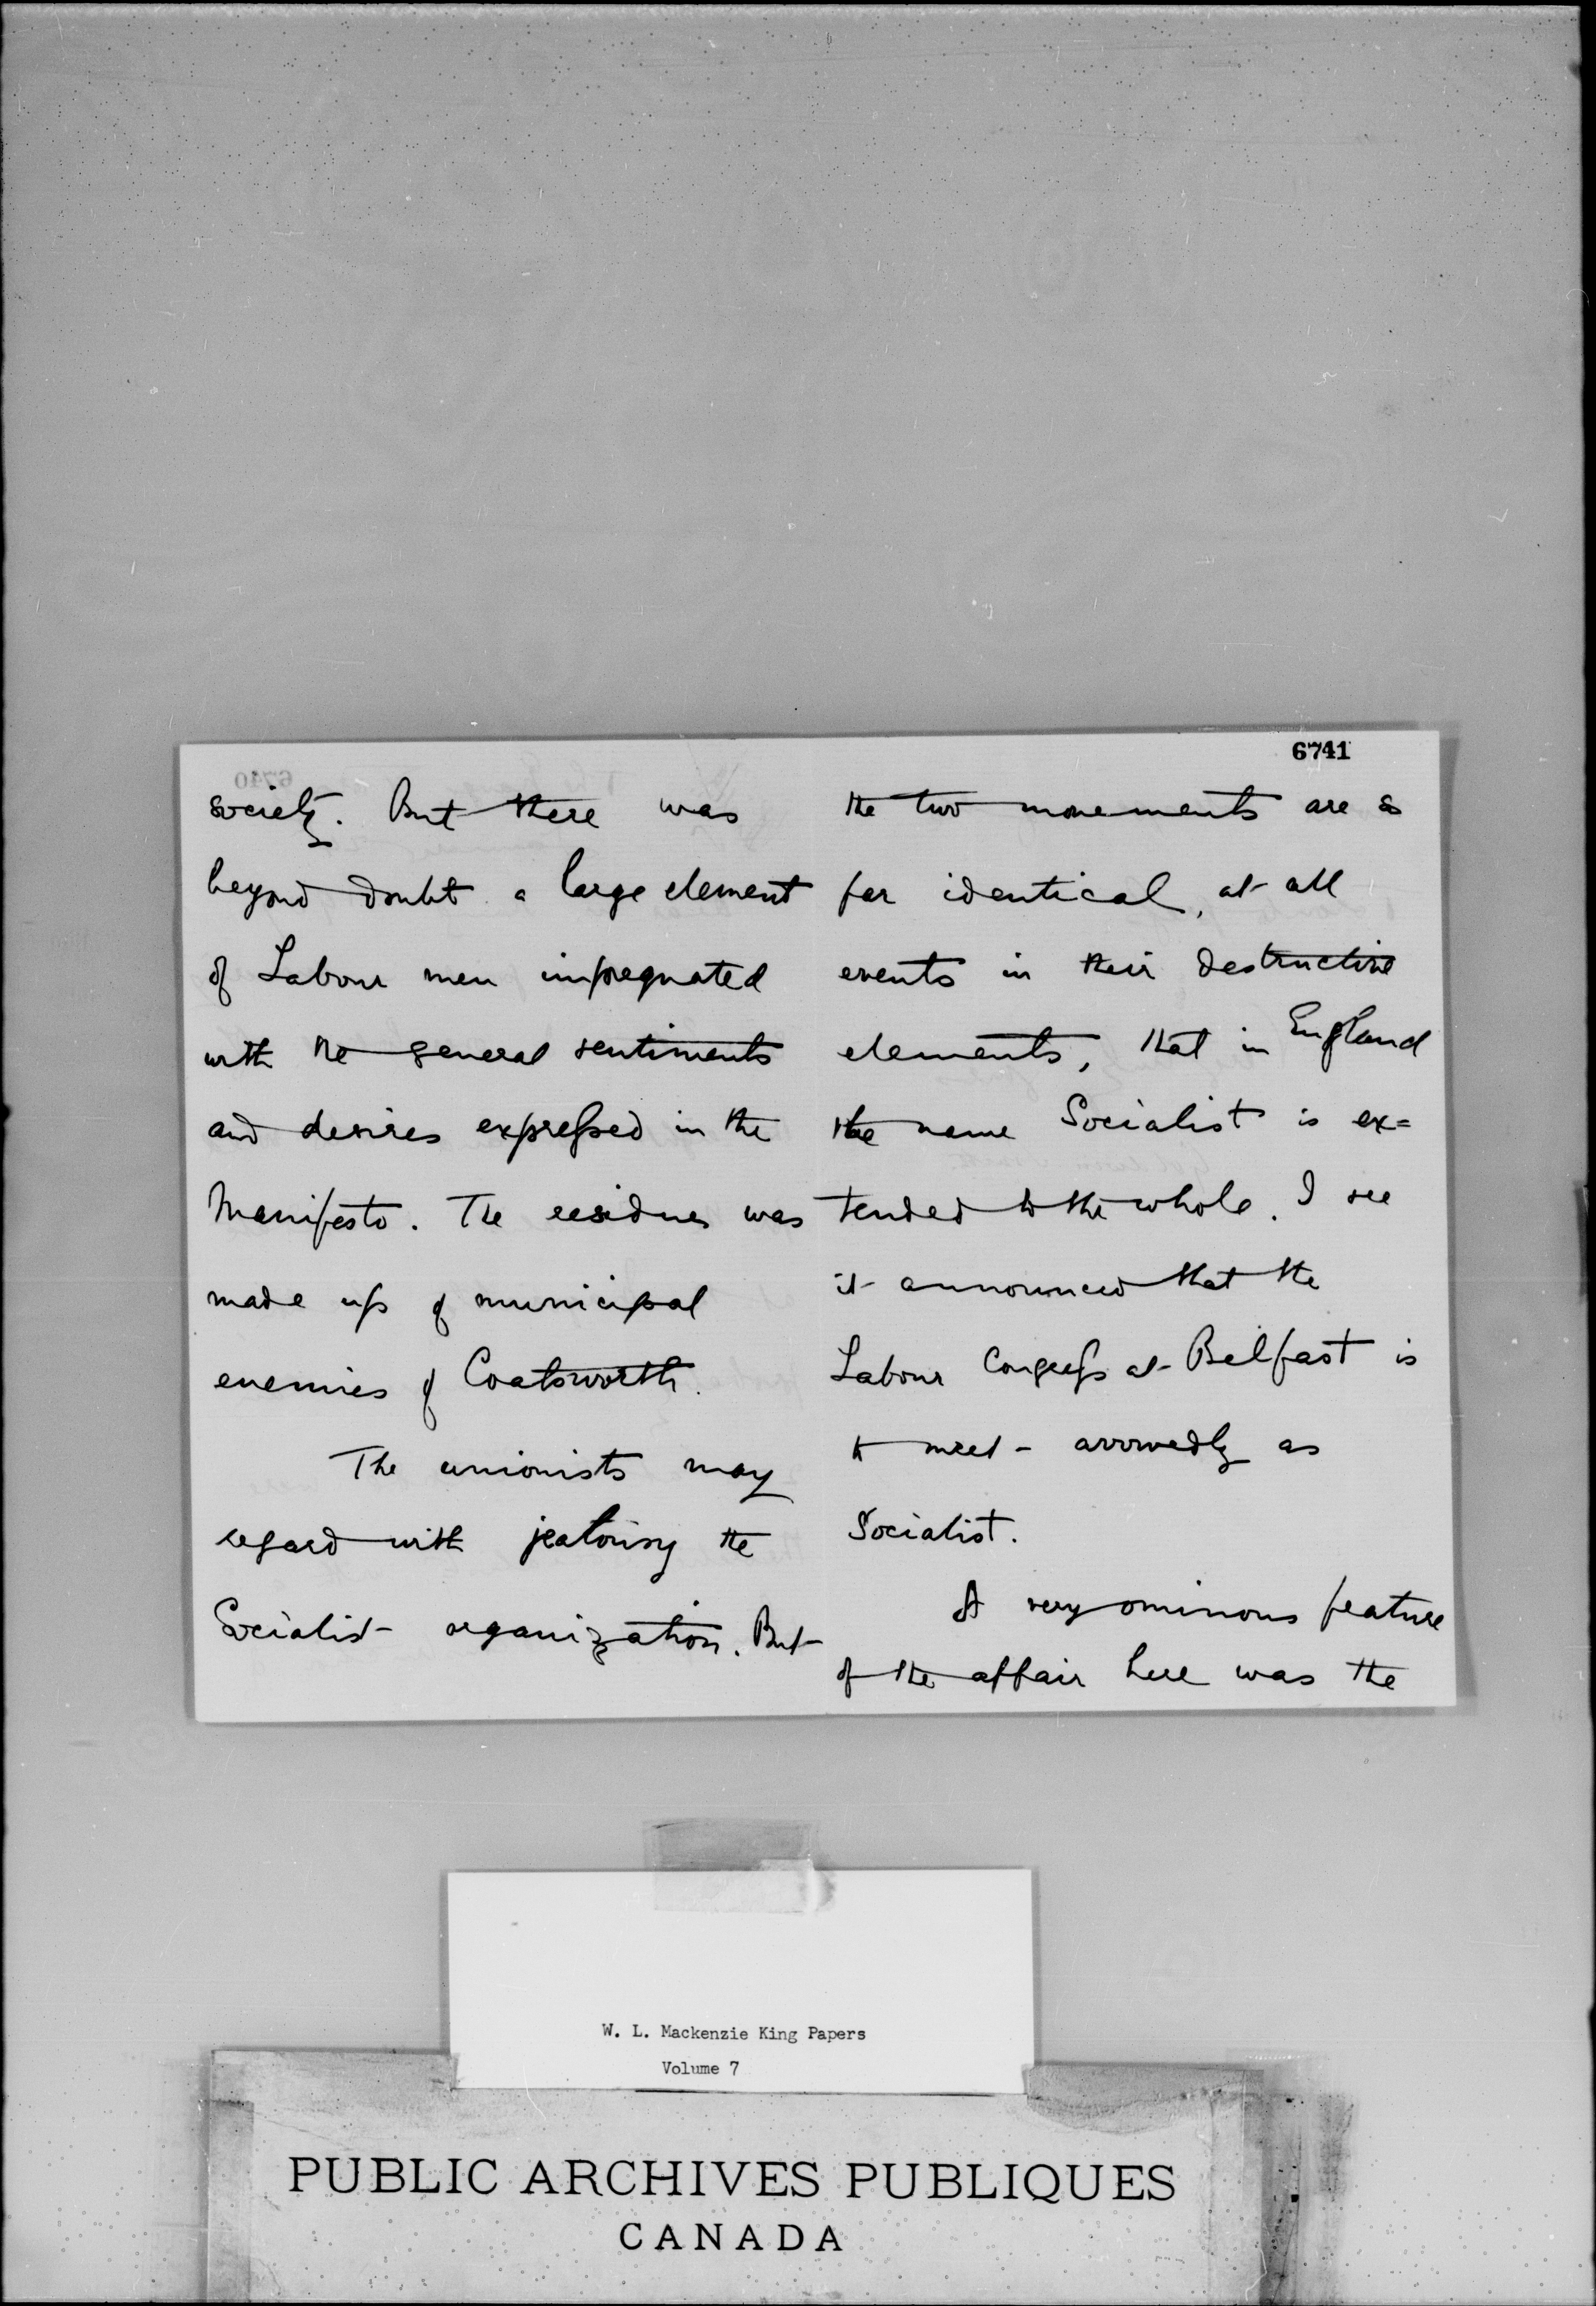 6741
society. But there was
beyond doubt a large element
of Labour men impregnated
with the general sentiments
and desires expressed in the
Manifesto. The residue was
made up of municipal
enemies of Coatsworth.
The unionists may
regard with jealousy the
Socialist organization. But
the two movements are so
far identical, at all
events in their destructive
elements, that in England
the name Socialist is ex=
tended to the whole. I see
it announced that the
Labour Congress at Belfast is
to meet avowedly as
Socialist.
A very ominous feature
of the affair here was the
W. L. Mackenzie King Papers
Volume 7
PUBLIC ARCHIVES PUBLIQUES
CANADA